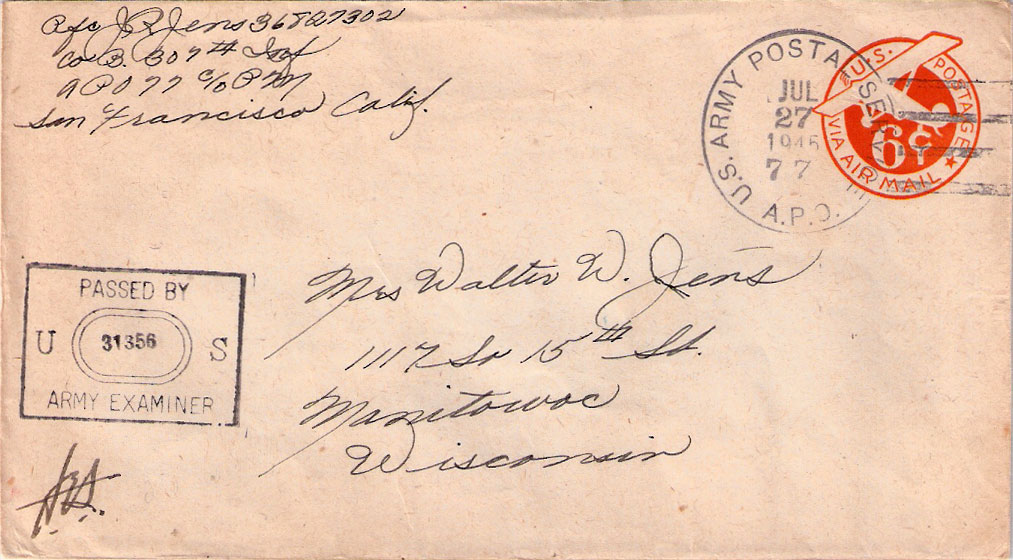 Pfc J.R. Jens 36827302
Co B. 307th Inf
APO 77 c/o PM
San Francisco Calif.
U.S. ARMY POSTAL SERVICE
JUL
27
1945
77
A.P.O.
U.S. POSTAGE
6¢
VIA AIR MAIL
PASSED BY
U 31356 S
ARMY EXAMINER
Mrs Walter W. Jens
1117 So 15th St.
Manitowoc
Wisconsin